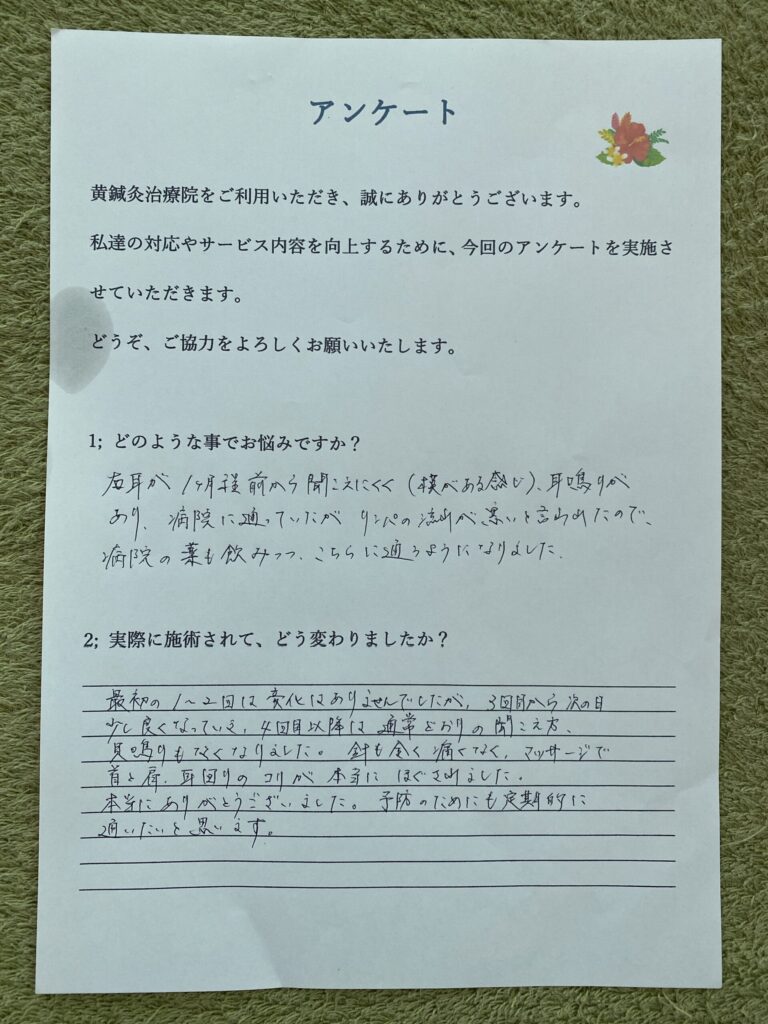 アンケート
黄鍼灸治療院をご利用いただき、誠にありがとうございます。
私達の対応やサービス内容を向上するために、今回のアンケートを実施さ
せていただきます。
どうぞ、ご協力をよろしくお願いいたします。
1; どのような事でお悩みですか?
右耳が 1ヶ月程前から聞こえにくく (膜がある感じ)、耳鳴りが
あり、病院に通っていたが リンパの流れが悪いと言われたので、
病院の薬も飲みつつ、こちらに通うようになりました。
2; 実際に施術されて、どう変わりましたか?
最初の 1〜2回は変化はありませんでしたが、3回目から次の日
少し良くなっていき、4回目以降は通常どおりの聞こえ方、
耳鳴りもなくなりました。針も全く痛くなく、マッサージで
首と肩、耳回りのコリが本当にほぐされました。
本当にありがとうございました。予防のためにも定期的に
通いたいと思います。